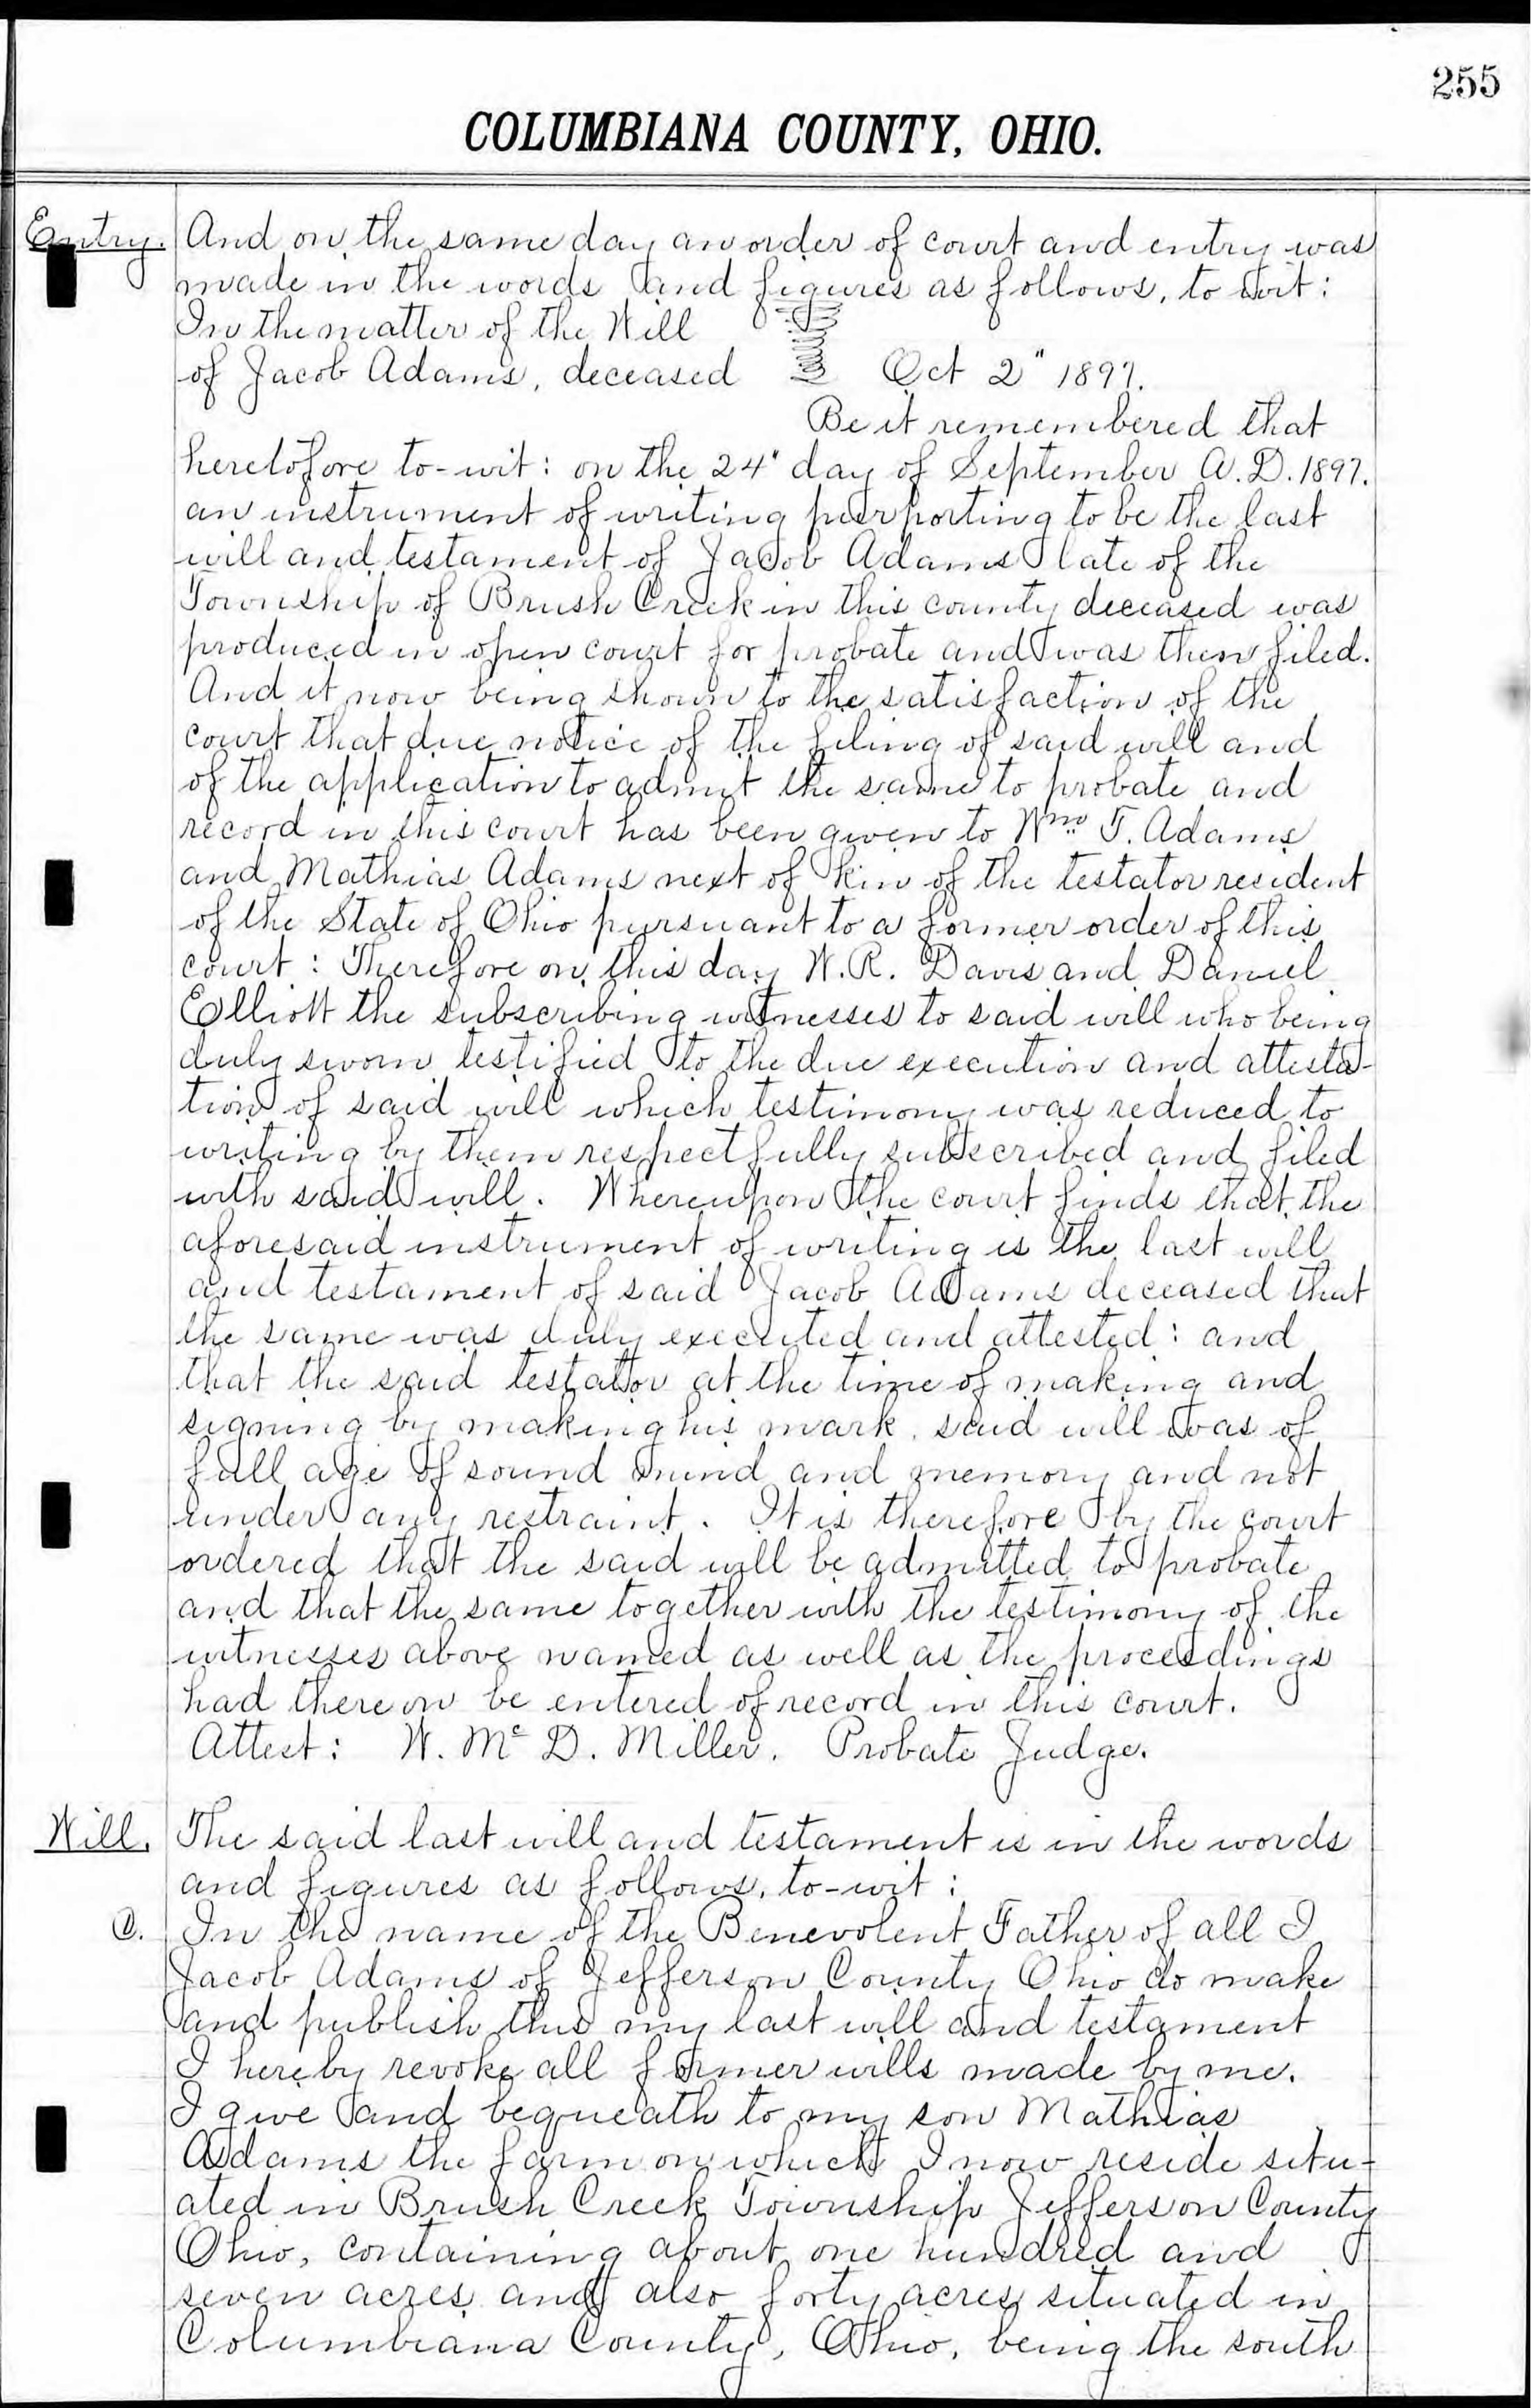 255
COLUMBIANA COUNTY, OHIO.
Entry. And on the same day an order of court and entry was
made in the words and figures as follows, to wit:
In the matter of the Will
of Jacob Adams, deceased Oct 2" 1897.
Be it remembered that
heretofore to-wit: on the 24" day of September A.D. 1897.
an instrument of writing purporting to be the last
will and testament of Jacob Adams late of the
Township of Brush Creek in this county deceased was
produced in open court for probate and was then filed.
And it now being shown to the satisfaction of the
court that due notice of the filing of said will and
of the application to admit the same to probate and
record in this court has been given to Wm. T. Adams
and Mathias Adams next of kin of the testator resident
of the State of Ohio pursuant to a former order of this
court: Therefore on this day W. R. Davis and Daniel
Elliott the subscribing witnesses to said will who being
duly sworn testified to the due execution and attesta-
tion of said will which testimony was reduced to
writing by them respectfully subscribed and filed
with said will. Whereupon the court finds that the
aforesaid instrument of writing is the last will
and testament of said Jacob Adams deceased that
the same was duly executed and attested: and
that the said testator at the time of making and
signing by making his mark, said will was of
full age of sound mind and memory and not
under any restraint. It is therefore by the court
ordered that the said will be admitted to probate
and that the same together with the testimony of the
witnesses above named as well as the proceedings
had thereon be entered of record in this court.
Attest: W. Mc D. Miller. Probate Judge.
Will. The said last will and testament is in the words
and figures as follows, to-wit:
C. In the name of the Benevolent Father of all I
Jacob Adams of Jefferson County Ohio do make
and publish this my last will and testament
I hereby revoke all former wills made by me.
I give and bequeath to my son Mathias
Adams the farm on which I now reside situ-
ated in Brush Creek Township Jefferson County
Ohio, containing about one hundred and
seven acres and also forty acres situated in
Columbiana County, Ohio, being the south